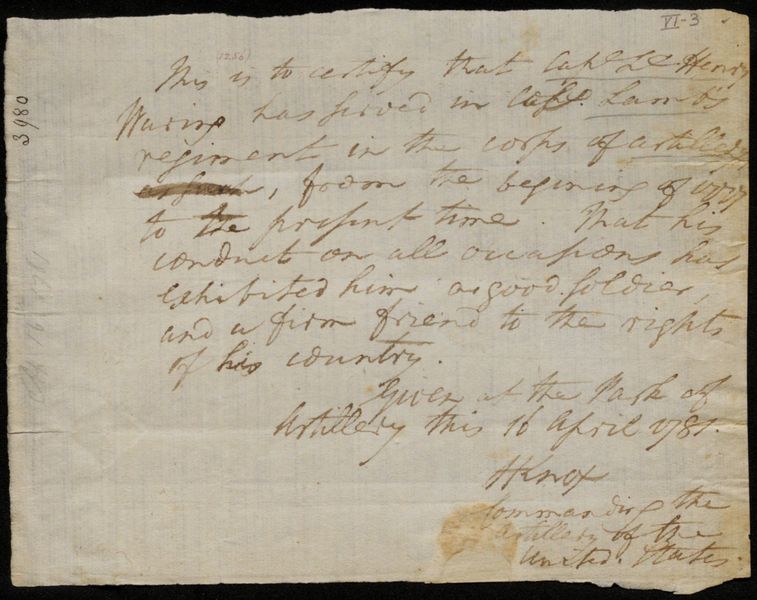 VI-3
(1250)
3980
This is to certify that Capt. Lt Henry
Waring has served in Colo. Lamb's
regiment in the corps of artillery
, from the begining of 1777
to the present time. That his
conduct on all occasions has
exhibited him a good soldier,
and a firm friend to the rights
of his country.
Given at the Park of
Artillery this 16 April 1781.
HKnox
Commanding the
artillery of the
United States.